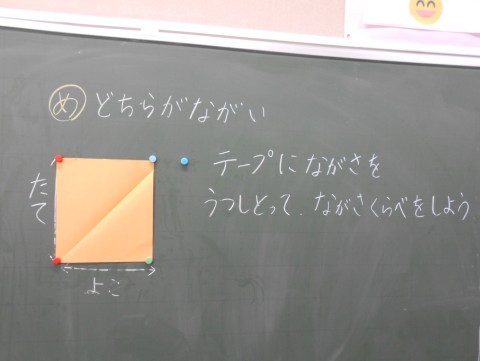 め どちらがながい
テープにながさを
うつしとって、ながさくらべをしよう
たて
よこ